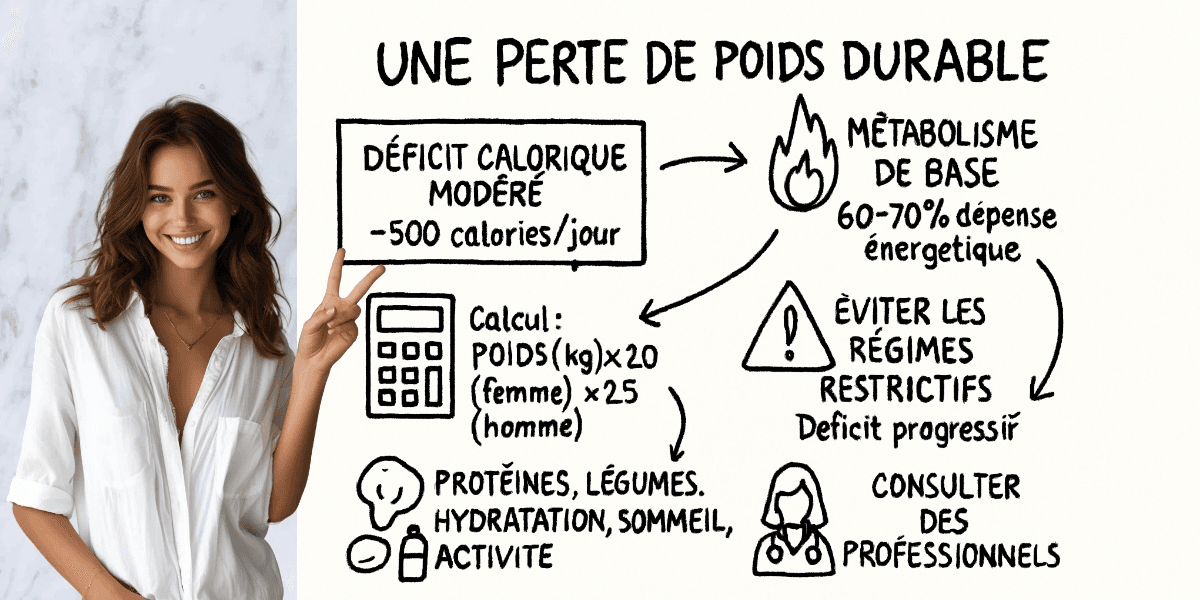 UNE PERTE DE POIDS DURABLE
DÉFICIT CALORIQUE
MODÉRÉ
-500 calories/jour
MÉTABOLISME
DE BASE
60-70% dépense
énergetique
Calcul:
POIDS (kg)×20
(femme) ×25
(homme)
ÈVITER LES
RÉGIMES
RESTRICTIFS
Deficit progressif
PROTĚINES, LÉGUMES.
HYDRATATION, SOMMEIL,
ACTIVITE
CONSULTER
DES
PROFESSIONNELS